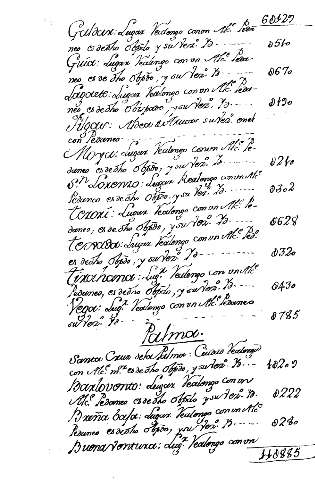 60127
Galdar: Lugar Realengo con un Alc.e Peda-
neo es de dho Obpdo y su Vez.o B. 0510
Guia: Lugar Realengo con un Alc.e Peda-
neo es de dho Obpdo, y su Vez.o B. 0670
Lagaete: Lugar Realengo con un Alc.e Peda-
neo es de dho Obispado y su Vez.o B.
con Pedaneo
Moya: Lugar Realengo con un Alc.e Pe-
daneo es de dho Obpdo, y su Vez.o B. 0240
S.n Lorenzo: Lugar Realengo con un Alc.e
Pedaneo es de dho Obpdo, y su Vez.o B. 0302
Teror: Lugar Realengo con un Alc.e Pe-
daneo, es de dho Obpdo, y su Vez.o B. 0628
Texeda: Lugar Realengo con un Alc.e Ped.o
es de dho Obpdo, y su Vez.o B. 0320
Tirajana: Lug.r Realengo con un Alc.e
Pedaneo, es de dho Obpdo, y su Vez.o B. 0430
Vega: Lug.r Realengo con un Alc.e Pedaneo
su Vez.o B. 0785
Palma.
Santa Cruz de la Palma: Ciudad Realengo
con Alc.e m.r es de dho Obpdo, y su Vez.o B.
Barlovento: Lugar Realengo con un
Alc.e Pedaneo es de dho Obpdo y su Vez.o B. 0222
Breña baja: Lugar Realengo con un Alc.e
Pedaneo es de dho Obpdo, y su Vez.o B. 0280
Buenaventura: Lug.r Realengo con un